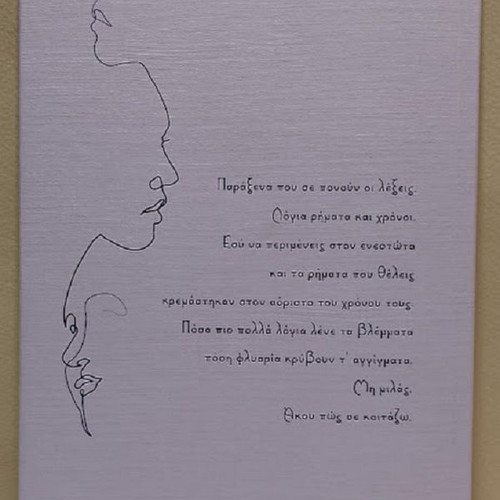 Παράξενα που σε πονούν οι λέξεις.
Λόγια ρήματα και χρόνοι.
Εσύ να περιμένεις στον ενεστώτα
και τα ρήματα που θέλεις
κρεμάστηκαν στον αόριστο του χρόνου τους.
Πόσο πιο πολλά λόγια λένε τα βλέμματα
τόση φλυαρία κρύβουν τ' αγγίγματα.
Μη μιλάς.
Άκου πώς σε κοιτάζω.